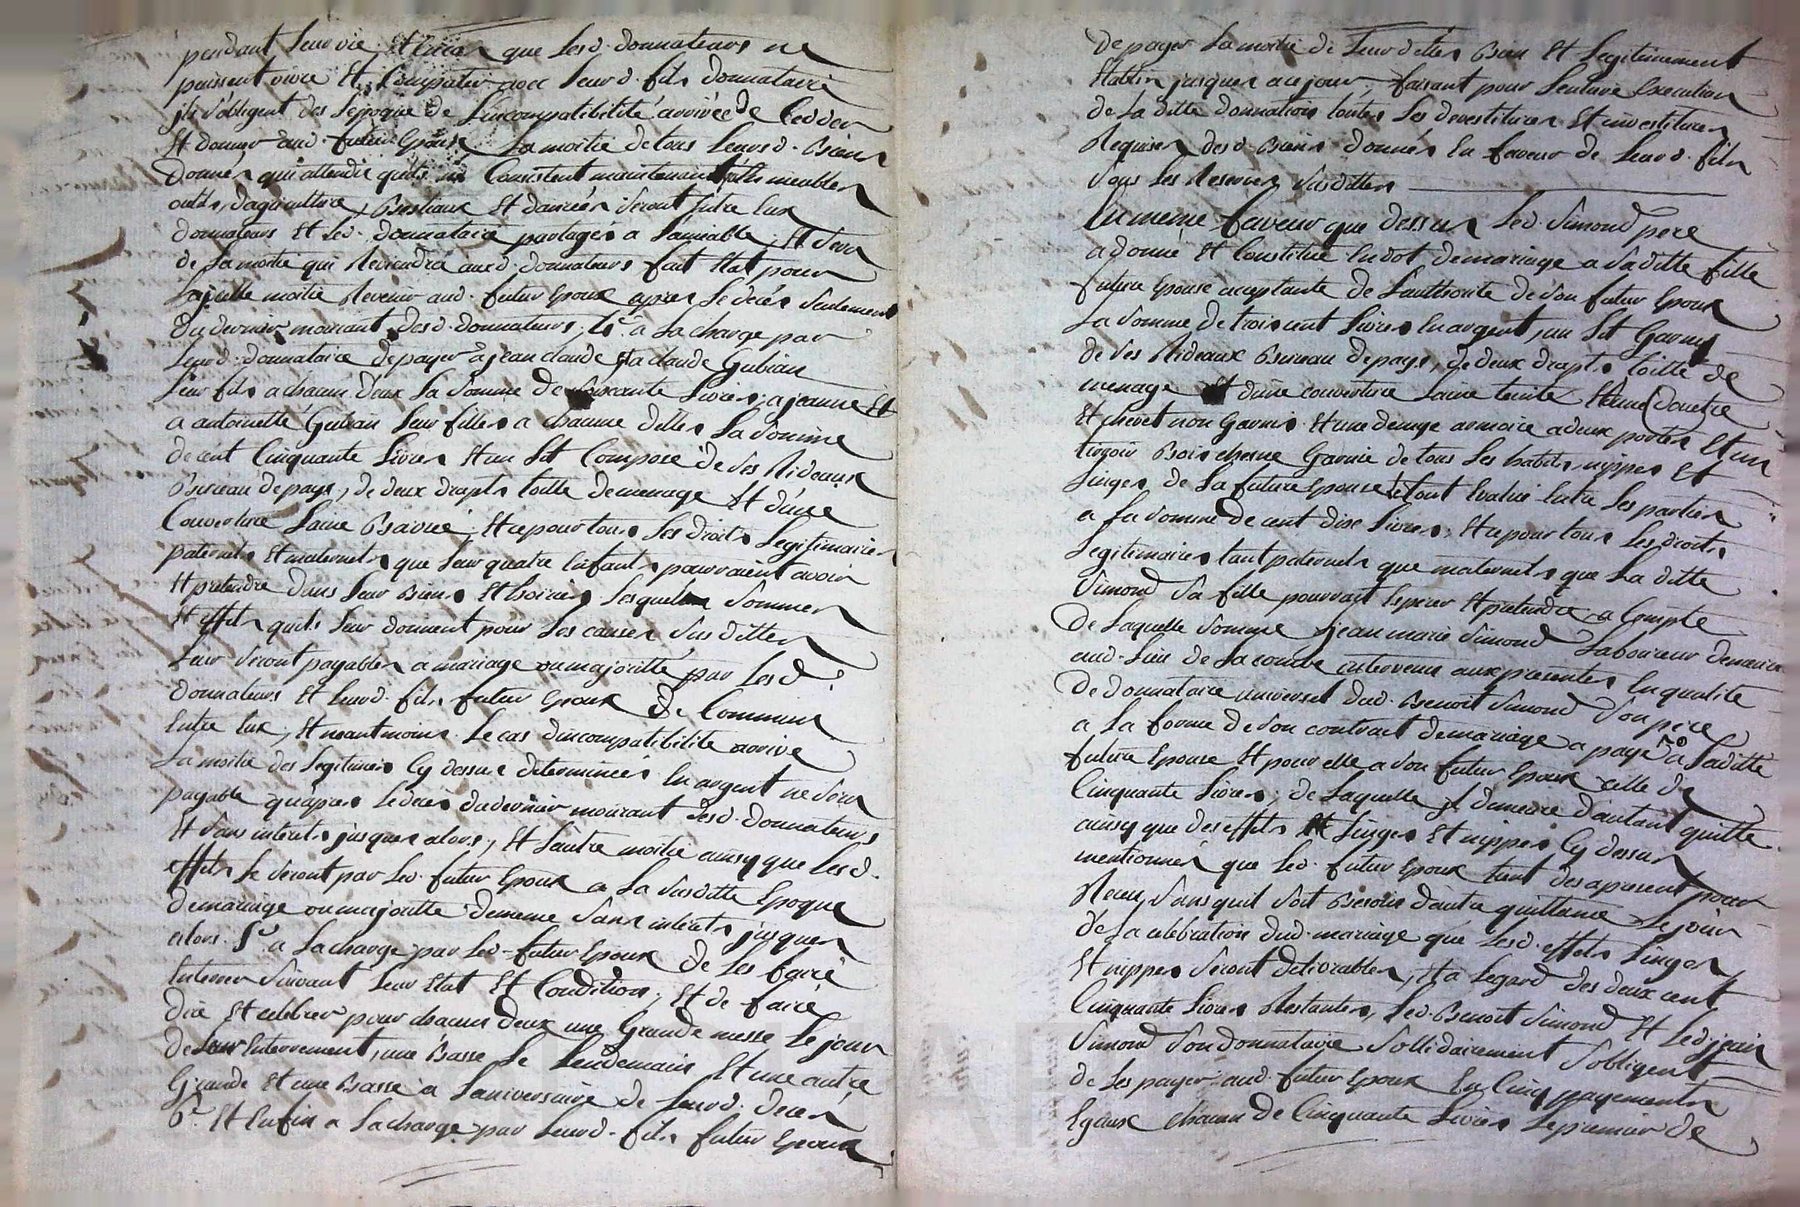 pendant leur vie, Et que lesd. donnateurs ne
puissent vivre Et Compatir avec leurd. fils donnataire
ils s'obligent des lepoque de l'incompatibilité arrivée de Cedder
Et donner aud. futur Epoux la moitié de tous leursd. Biens
donnés qui attendu quils Consistent maintenant meubles
outils d'agriculture, Bestiaux Et danrées seront Entre Eux
donnateurs Et led. donnataire partagés a lamiable, Et sera
de la moitié qui Reviendra auxd. donnateurs fait Etat pour
laquelle moitié Revenir aud. futur Epoux apres le decés seulement
du dernier mourant desd. donnateurs, 4.º a la charge par
leurd. donnataire de payer a jean claude Et a claude Gubian
leur fils a chacun deux la somme de soixante livres, a jeanne Et
a antoinette Gubian leur filles a chacune delles la somme
de cent Cinquante livres Et un lit Composé de ses Rideaux
Bureau de pays, de deux drapts toille de menage Et d'une
Couverture laine ; Et ce pour tous les droits legitimaires
paternels Et maternels que leur quatre Enfants pourraient avoir
Et pretendre dans leur Biens Et hoiries lesquelles sommes
Et effets quils leur donnent pour les causes susdittes
leur seront payables a mariage ou majorité par lesd.
donnateurs Et leurd. fils futur Epoux de Commun
Entre Eux, Et neantmoins le cas d'incompatibilité arrivé
la moitié des legitimes Cy dessus determinées En argent ne sera
payable qu'apres le decés du dernier mourant desd. donnateurs
Et sans interets jusques alors, Et l'autre moitié ainsy que lesd.
effets le seront par led. futur Epoux a la susditte Epoque
de mariage ou majorité de meme sans interets jusques
alors 5.º a la charge par led. futur Epoux de les faire
Enterrer suivant leur Etat Et Condition, Et de faire
dire Et celebrer pour chacun deux une Grande messe le jour
de leur Enterrement, une Basse le lendemain Et une autre
Grande Et une Basse a laniversaire de leursd. decés
6.º Et Enfin a la charge par leurd. fils futur Epoux
de payer la moitié de leur dettes Bien Et legitimement
Etablies jusques a ce jour, faisant pour l'entiere Execution
de la ditte donnation toutes les devestitures Et investitures
Requises desd. Biens donnés En faveur de leurd. fils
sous les Reserves susdittes
En meme faveur que dessus led. Simond pere
a donné Et Constitué En dot de mariage a saditte fille
future Epouse acceptante de l'authorité de son futur Epoux
la somme de trois cent livres En argent, un lit Garny
de ses Rideaux Bureau de pays, de deux drapts toille de
menage Et d'une couverture laine teinte,
Et chevet non Garnis Et une armoire a deux portes Et un
tiroir Bois chesne Garnie de tous les habits, nippes Et
linges de la future Epouse le tout Evalué Entre les parties
a la somme de cent dix livres, Et ce pour tous les droits
legitimaires tant paternels que maternels que la ditte
Simond sa fille pourrait Esperer Et pretendre, a Compte
de laquelle somme jean marie Simond laboureur demeurant
aud. lieu de la combe intervenu aux presentes En qualité
de donnataire universel dud. Benoit Simond son pere
a la forme de son contrat de mariage a payé a laditte
future Epouse Et pour elle a son futur Epoux celle de
Cinquante livres, de laquelle il demeure d'autant quitte
ainsy que des effets Et linges Et nippes Cy dessus
mentionnés que led. futur Epoux tient des a present pour
Reçus, sans quil soit Besoin d'autre quittance le jour
de la celebration dud. mariage que lesd. effets linges
Et nippes seront delivrables, Et a l'egard des deux cent
Cinquante livres Restantes, led. Benoit Simond Et led. jean
Simond son donnataire sollidairement s'obligent
de les payer aud. futur Epoux En Cinq payements
Egaux chacun de Cinquante livres le premier de